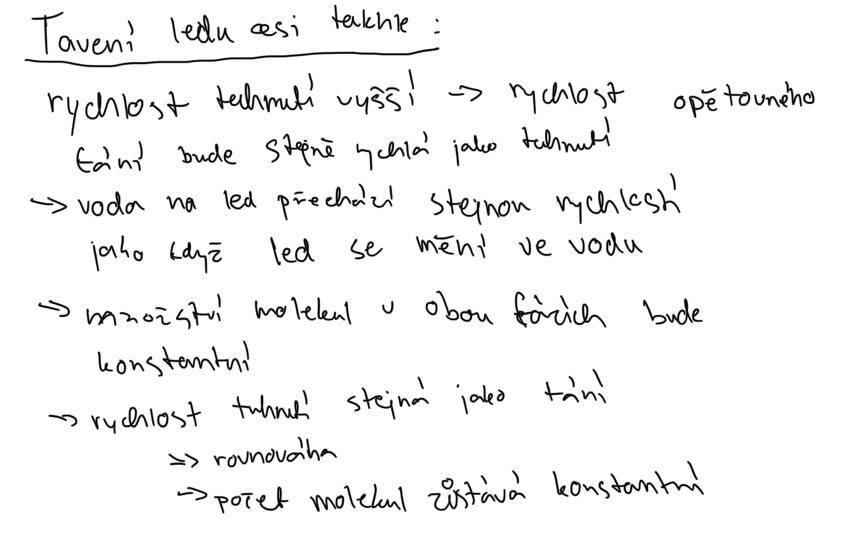 Tavení ledu asi takhle :
rychlost tuhnutí vyšší → rychlost opětovného
tání bude stejně rychlá jako tuhnutí
→ voda na led přechází stejnou rychlostí
jako když led se mění ve vodu
→ množství molekul v obou fázích bude
konstantní
→ rychlost tuhnutí stejná jako tání
=> rovnováha
→ počet molekul zůstává konstantní